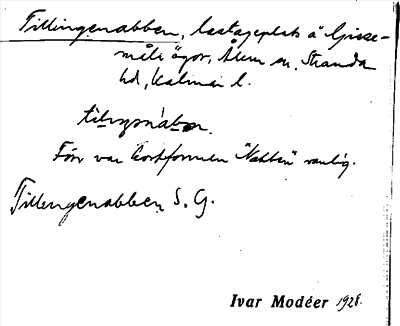 Tillingenabben, lastageplats å Gisse-
måla ägor, Ålem sn, Stranda
hd, Kalmar l.
Förr var kortformen "Nabben" vanlig.
Tillingenabben S. G.
Ivar Modéer 1928.